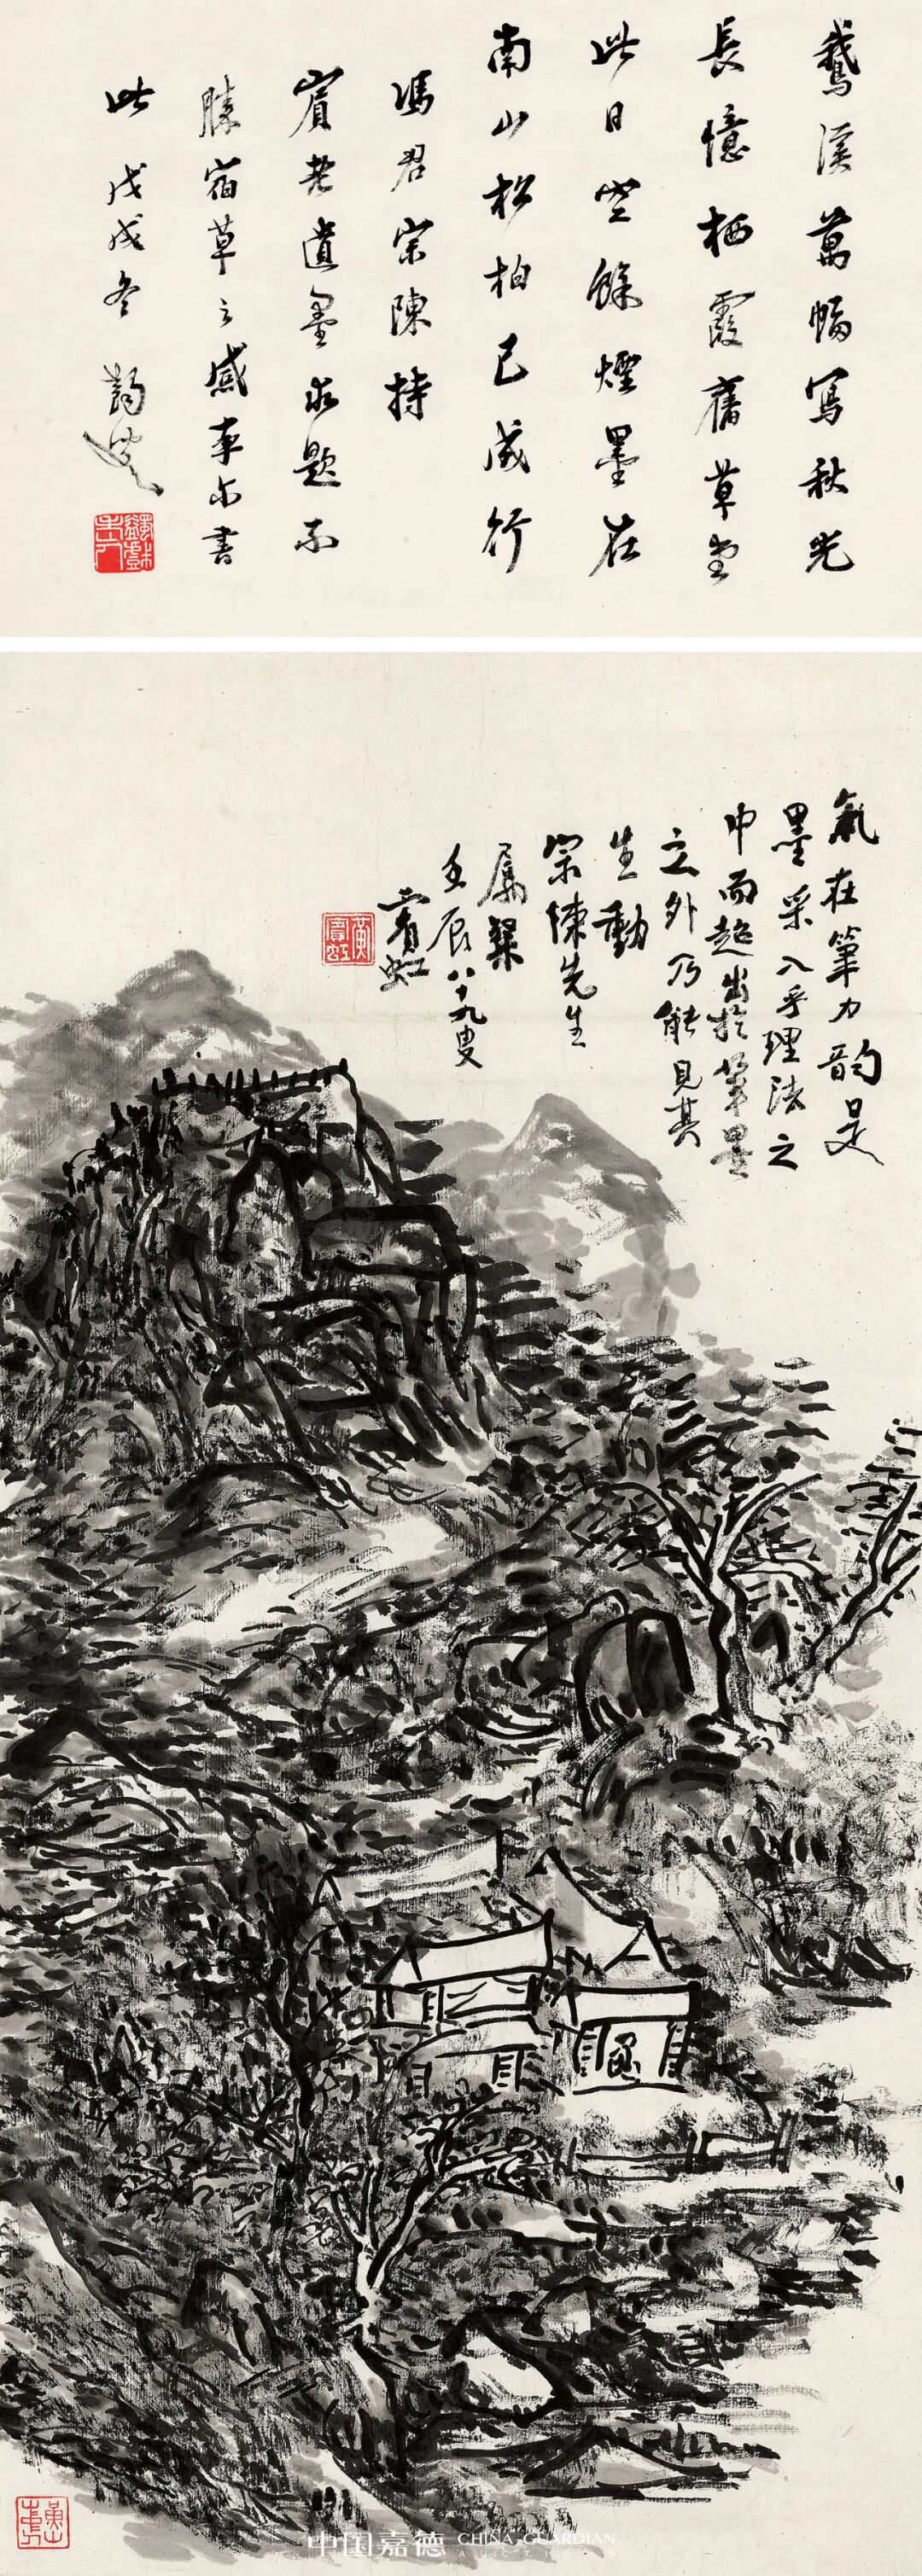 鵞溪萬幅寫秋光
長憶栖霞舊草堂
此日空餘煙墨在
南山松柏已成行
馮君宗陳持
賓老遺墨求題不
勝宿草之感率尔書
此 戊戌冬
氣在筆力韵是
墨采入乎理法之
中而超出於筆墨
之外乃能見其
生動
宗悚先生
屬粲
壬辰八十九叟
賓虹
黃賓虹
中国嘉德 CHINA GUARDIAN
AUCTIONS